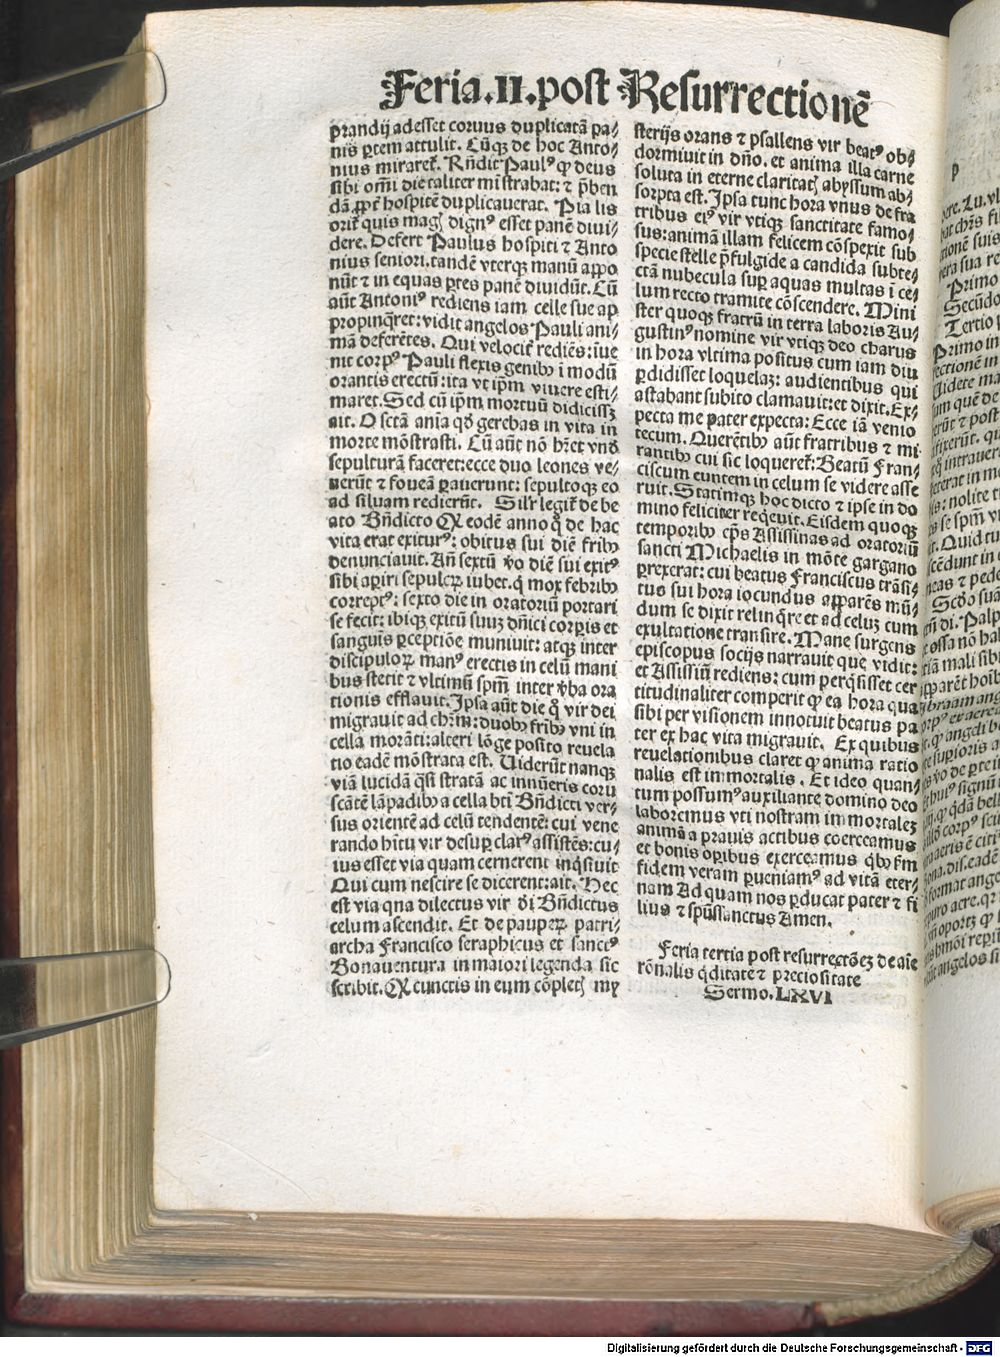 Feria.II.post Resurrectionẽ
prandij adesset coruus duplicatã pa/
nis ꝑtem attulit. Cũqꝫ de hoc Anto/
nius miraret᷑. Rñdit Paulꝰ ꝙ deus
sibi oĩ die taliter mĩstrabat: ⁊ p̃ben
dã ꝓpt̾ hospitẽ duplicauerat. Pia lis
orit᷑ quis mag̃ dignꝰ esset panẽ diui/
dere. Defert Paulus hospiti ⁊ Anto
nius seniori. tandẽ vterqꝫ manũ appo
nũt ⁊ in equas ꝑtes panẽ diuidũt. Cũ
aũt Antoniꝰ rediens iam celle sue ap
propinq̃ret: vidit angelos Pauli ani/
mã deferẽtes. Qui velocit᷑ rediẽs: iue
nit corpꝰ Pauli flexis genibꝰ i modũ
orantis erectũ: ita vt ip̃m viuere esti/
maret. Sed cũ ip̃m mortuũ didicissꝫ
ait. O sctã aĩa qd̾ gerebas in vita in
morte mõstrasti. Cũ aũt nõ hr̃et vnd̾
sepulturã faceret: ecce duo leones ve/
nerũt ⁊ foueã ꝑauerunt: sepultoqꝫ eo
ad siluam redierũt. Sil̾r legit᷑ de be
ato Bñdicto Qꝙ eodẽ anno q̃ de hac
vita erat exiturꝰ: obitus sui diẽ fribꝰ
denunciauit. Añ sextũ ꝟo diẽ sui exitꝰ
sibi aꝑiri sepulcꝝ iubet. q̃ mox febribꝰ
correptꝰ: sexto die in oratoriũ portari
se fecit: ibiqꝫ exitũ suuꝫ dñici corꝑis et
sanguis ꝑceptiõe muniuit: atqꝫ inter
discipuloꝝ manꝰ erectis in celũ mani
bus stetit ⁊ vltimũ spm̃ inter ꝟba ora
tionis efflauit. Ipsa aũt die q̃ vir dei
migrauit ad chr̃m: duobꝰ fribꝰ vni in
cella morãti: alteri lõge posito reuela
tio eadẽ mõstrata est. Uiderũt nanqꝫ
viã lucidã q̃si stratã ac innũeris coru
scãtẽ lãpadibꝰ a cella bti Bñdicti ver/
sus orientẽ ad celũ tendentẽ: cui vene
rando hitu vir desuꝑ clarꝰ assistẽs: cu/
ius esset via quam cernerent inq̃siuit
Qui cum nescire se dicerent: ait. Hec
est via qua dilectus vir di Bñdictus
celum ascendit. Et de pauꝑeꝝ patri/
archa Francisco seraphicus et sanctꝰ
Bonauentura in maiori legenda sic
scribit. Qꝙ cunctis in eum cõpletꝭ my
sterijs orans ⁊ psallens vir beatꝰ ob/
dormiuit in dño. et anima illa carne
soluta in eterne claritatꝭ abyssum ab/
sorpta est. Ipsa tunc hora vnus de fra
tribus eiꝰ vir vtiqꝫ sanctitate famo/
sus: animã illam felicem cõspexit sub
specie stelle p̃fulgide a candida subte/
ctã nubecula suꝑ aquas multas i ce/
lum recto tramite cõscendere. Mini
ster quoqꝫ fratrũ in terra laboris Au/
gustinꝰ nomine vir vtiqꝫ deo charus
in hora vltima positus cum iam diu
ꝑdidisset loquelaꝫ: audientibus qui
astabant subito clamauit: et dixit. Ex/
pecta me pater expecta: Ecce iã venio
tecum. Querẽtibꝰ aũt fratribus ⁊ mi
rantibꝰ cui sic loqueret᷑: Beatũ Fran/
ciscum euntem in celum se videre asse
ruit. Statimqꝫ hoc dicto ⁊ ipse in do
mino feliciter req̃euit. Eisdem quoqꝫ
temporibꝰ ep̃s Assisinas ad oratoriũ
sancti Michaelis in mõte gargano
ꝑrexerat: cui beatus Franciscus trãsi/
tus sui hora iocundus apparẽs mũ/
dum se dixit relinq̃re et ad celuꝫ cum
exultatione transire. Mane surgens
episcopus socijs narrauit que vidit:
et Assisiũ rediens: cum perq̃sisset cer
titudinaliter comperit ꝙ ea hora qua
sibi per visionem innotuit beatus pa
ter ex hac vita migrauit. Ex quibus
reuelationibus claret ꝙ anima ratio
nalis est immortalis. Et ideo quan/
tum possumꝰ auxiliante domino deo
laboremus vti nostram immortaleꝫ
animã a prauis actibus coerceamus
et bonis oꝑibus exerceamus q̃bꝰ ẜm
fidem veram ꝑueniamꝰ ad vitã eter/
nam Ad quam nos ꝑducat pater ⁊ fi
lius ⁊ spũssanctus Amen.
Feria tertia post resurrectõeꝫ de aĩe
rõnalis q̃ditate ⁊ preciositate
Sermo. LXVI
Primo
Secũdo
Tertio
Primo in
Digitalisierung gefördert durch die Deutsche Forschungsgemeinschaft - DFG